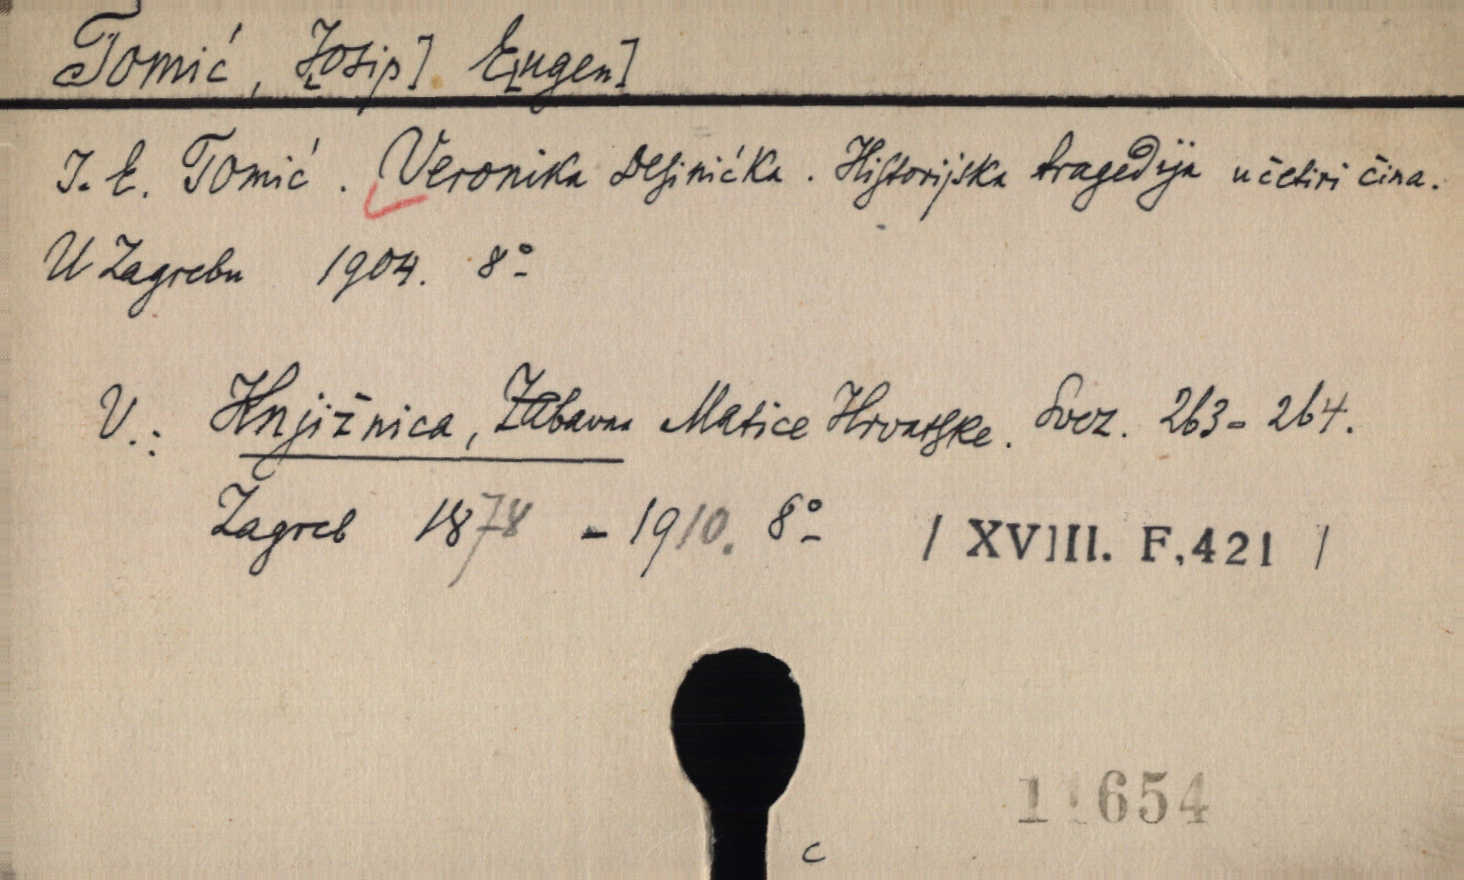 Tomić, J[osip] E[ugen]
J. E. Tomić. Veronika Desinićka. Historijska tragedija u četiri čina.
U Zagrebu 1904. 8°
V.: Knjižnica, Zabavna Matice Hrvatske. Svez. 263-264.
Zagreb 1878 - 1910. 8° / XVIII. F.421 /
11654
c